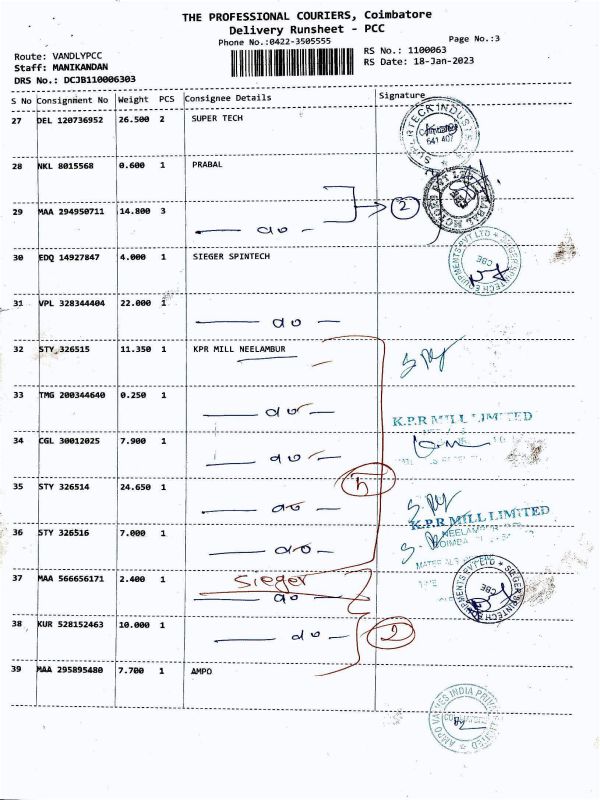 THE PROFESSIONAL COURIERS, Coimbatore
Delivery Runsheet - PCC
Phone No.:0422-3505555
Page No.:3
Route: VANDLYPCC
RS No.: 1100063
Staff: MANIKANDAN
RS Date: 18-Jan-2023
DRS No.: DCJB110006303
S No Consignment No Weight PCS Consignee Details Signature
27 DEL 120736952 26.500 2 SUPER TECH
Coimbatore
641 407
28 NKL 8015568 0.600 1 PRABAL
29 MAA 294950711 14.800 3
2
do
30 EDQ 14927847 4.000 1 SIEGER SPINTECH
SIEGER SPINTECH EQUIPMENTS PVT LTD
CBE
31 VPL 328344404 22.000 1
do
32 STY 326515 11.350 1 KPR MILL NEELAMBUR
33 TMG 200344640 0.250 1
do
K.P.R MILL LIMITED
34 CGL 30012025 7.900 1
do
5
35 STY 326514 24.650 1
do
K.P.R MILL LIMITED
36 STY 326516 7.000 1
do
37 MAA 566656171 2.400 1 Sieger
do
SIEGER SPINTECH EQUIPMENTS PVT LTD
CBE
38 KUR 528152463 10.000 1
do
2
39 MAA 295895480 7.700 1 AMPO
AMPO VALVES INDIA PRIVATE LIMITED